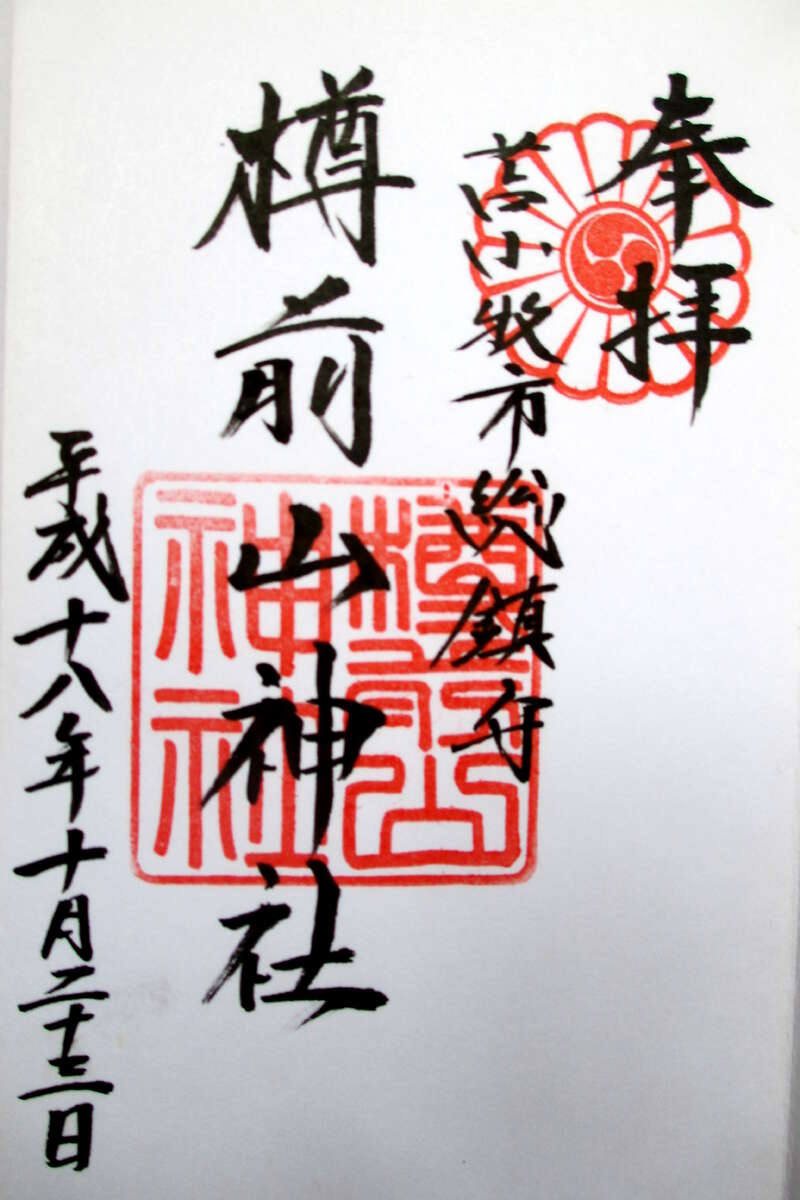 奉拝
苫小牧市総鎮守
樽前山神社
樽前山神社
平成十八年十月二十三日